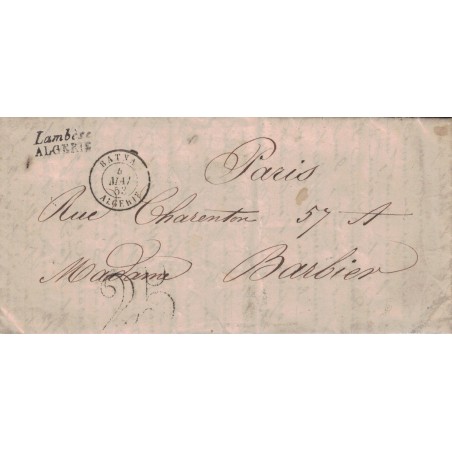 Lambèse
ALGERIE
BATNA
6
MAI
53
ALGERIE
Paris
Rue Charenton 57 A
Madame Barbier
25